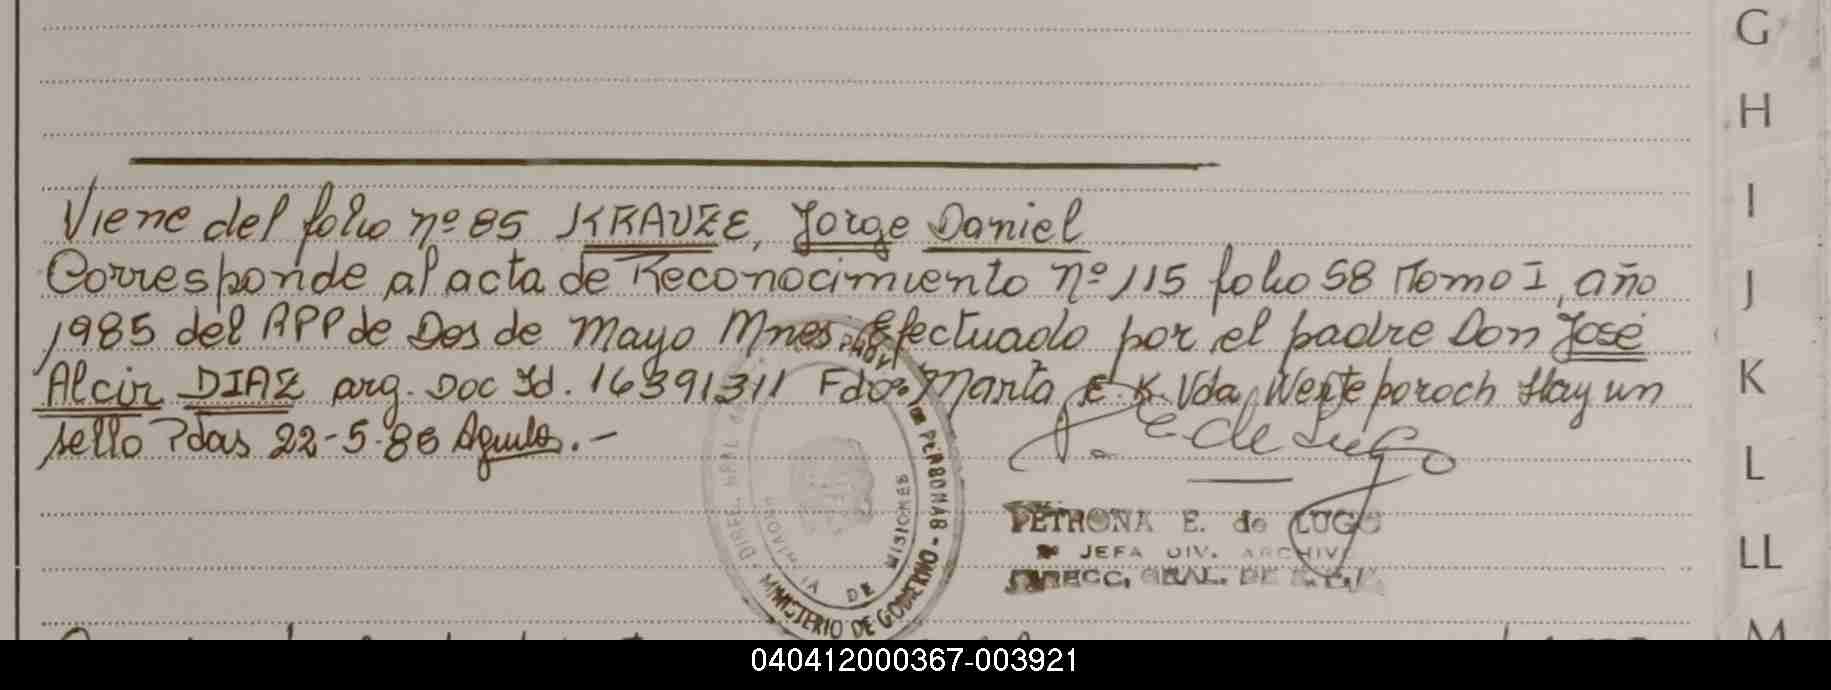 G
H
I
J
K
L
LL
M
Viene del folio nº 85 KRAUZE, Jorge Daniel
Corresponde al acta de Reconocimiento nº 115 folio 58 Tomo I, año
1985 del RPP de Dos de Mayo Mnes. Efectuado por el padre Don José
Alcir DIAZ arg. Doc Id. 16391311 Fdo: Marta E. K. Vda Hay un
sello Pdas 22-5-86
P. E. de Lugo
PETRONA E. de LUGO
JEFA DIV. ARCHIVO
DIRECC. GRAL. DE
DE PERSONAS - MINISTERIO DE GOBIERNO
PROVINCIA DE MISIONES
040412000367-003921